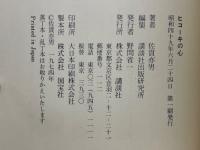 ヒコーキの心
昭和四十九年六月二十四日 第一刷発行
著者 佐貫亦男
編集 講談社出版研究所
発行者 野間省一
発行所 株式会社 講談社
東京都文京区音羽二-一二-二一
郵便番号 一一二
電話 東京〇三
振替 東京三九三〇
印刷所 大日本印刷株式会社
製本所 株式会社 国宝社
©佐貫亦男 一九七四年
落丁本・乱丁本はお取りかえいたします
Printed in Japan